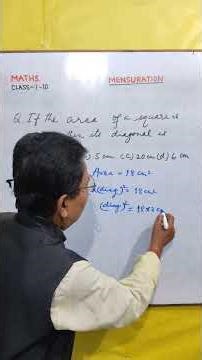 MATHS. MENSURATION
CLASS-1-10
Q. If the area of a square is
its diagonal is
5 cm (c) 20 cm (d) 6 cm
Area = 18 cm²
(diag)² = 18 cm²
(diag)² = 18×2 cm